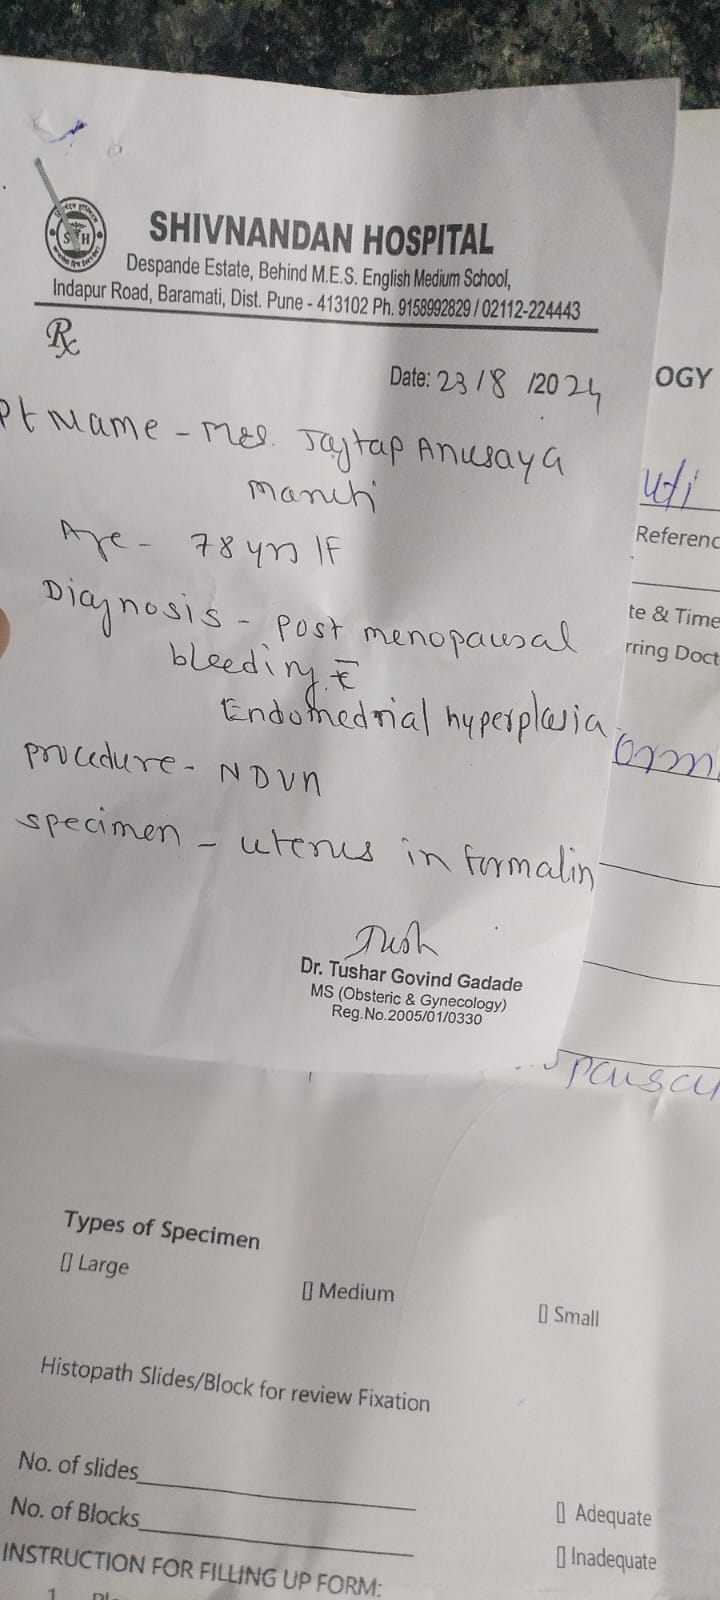 SHIVNANDAN HOSPITAL
Despande Estate, Behind M.E.S. English Medium School,
Indapur Road, Baramati, Dist. Pune - 413102 Ph. 9158992829 / 02112-224443
Rx
Date: 23/8/2024
Pt Name - Mrs. Jagtap Anusaya
Age - 78 yrs/F
Diagnosis - post menopausal
bleeding c̄
Endomedrial hyperplasia
procedure - NDVH
specimen - uterus in formalin
Dr. Tushar Govind Gadade
MS (Obsteric & Gynecology)
Reg.No.2005/01/0330
OGY
uti
Referenc
te & Time
rring Doct
orm
pausa
Types of Specimen
[] Large
[] Medium
[] Small
Histopath Slides/Block for review Fixation
No. of slides
[] Adequate
No. of Blocks
[] Inadequate
INSTRUCTION FOR FILLING UP FORM: